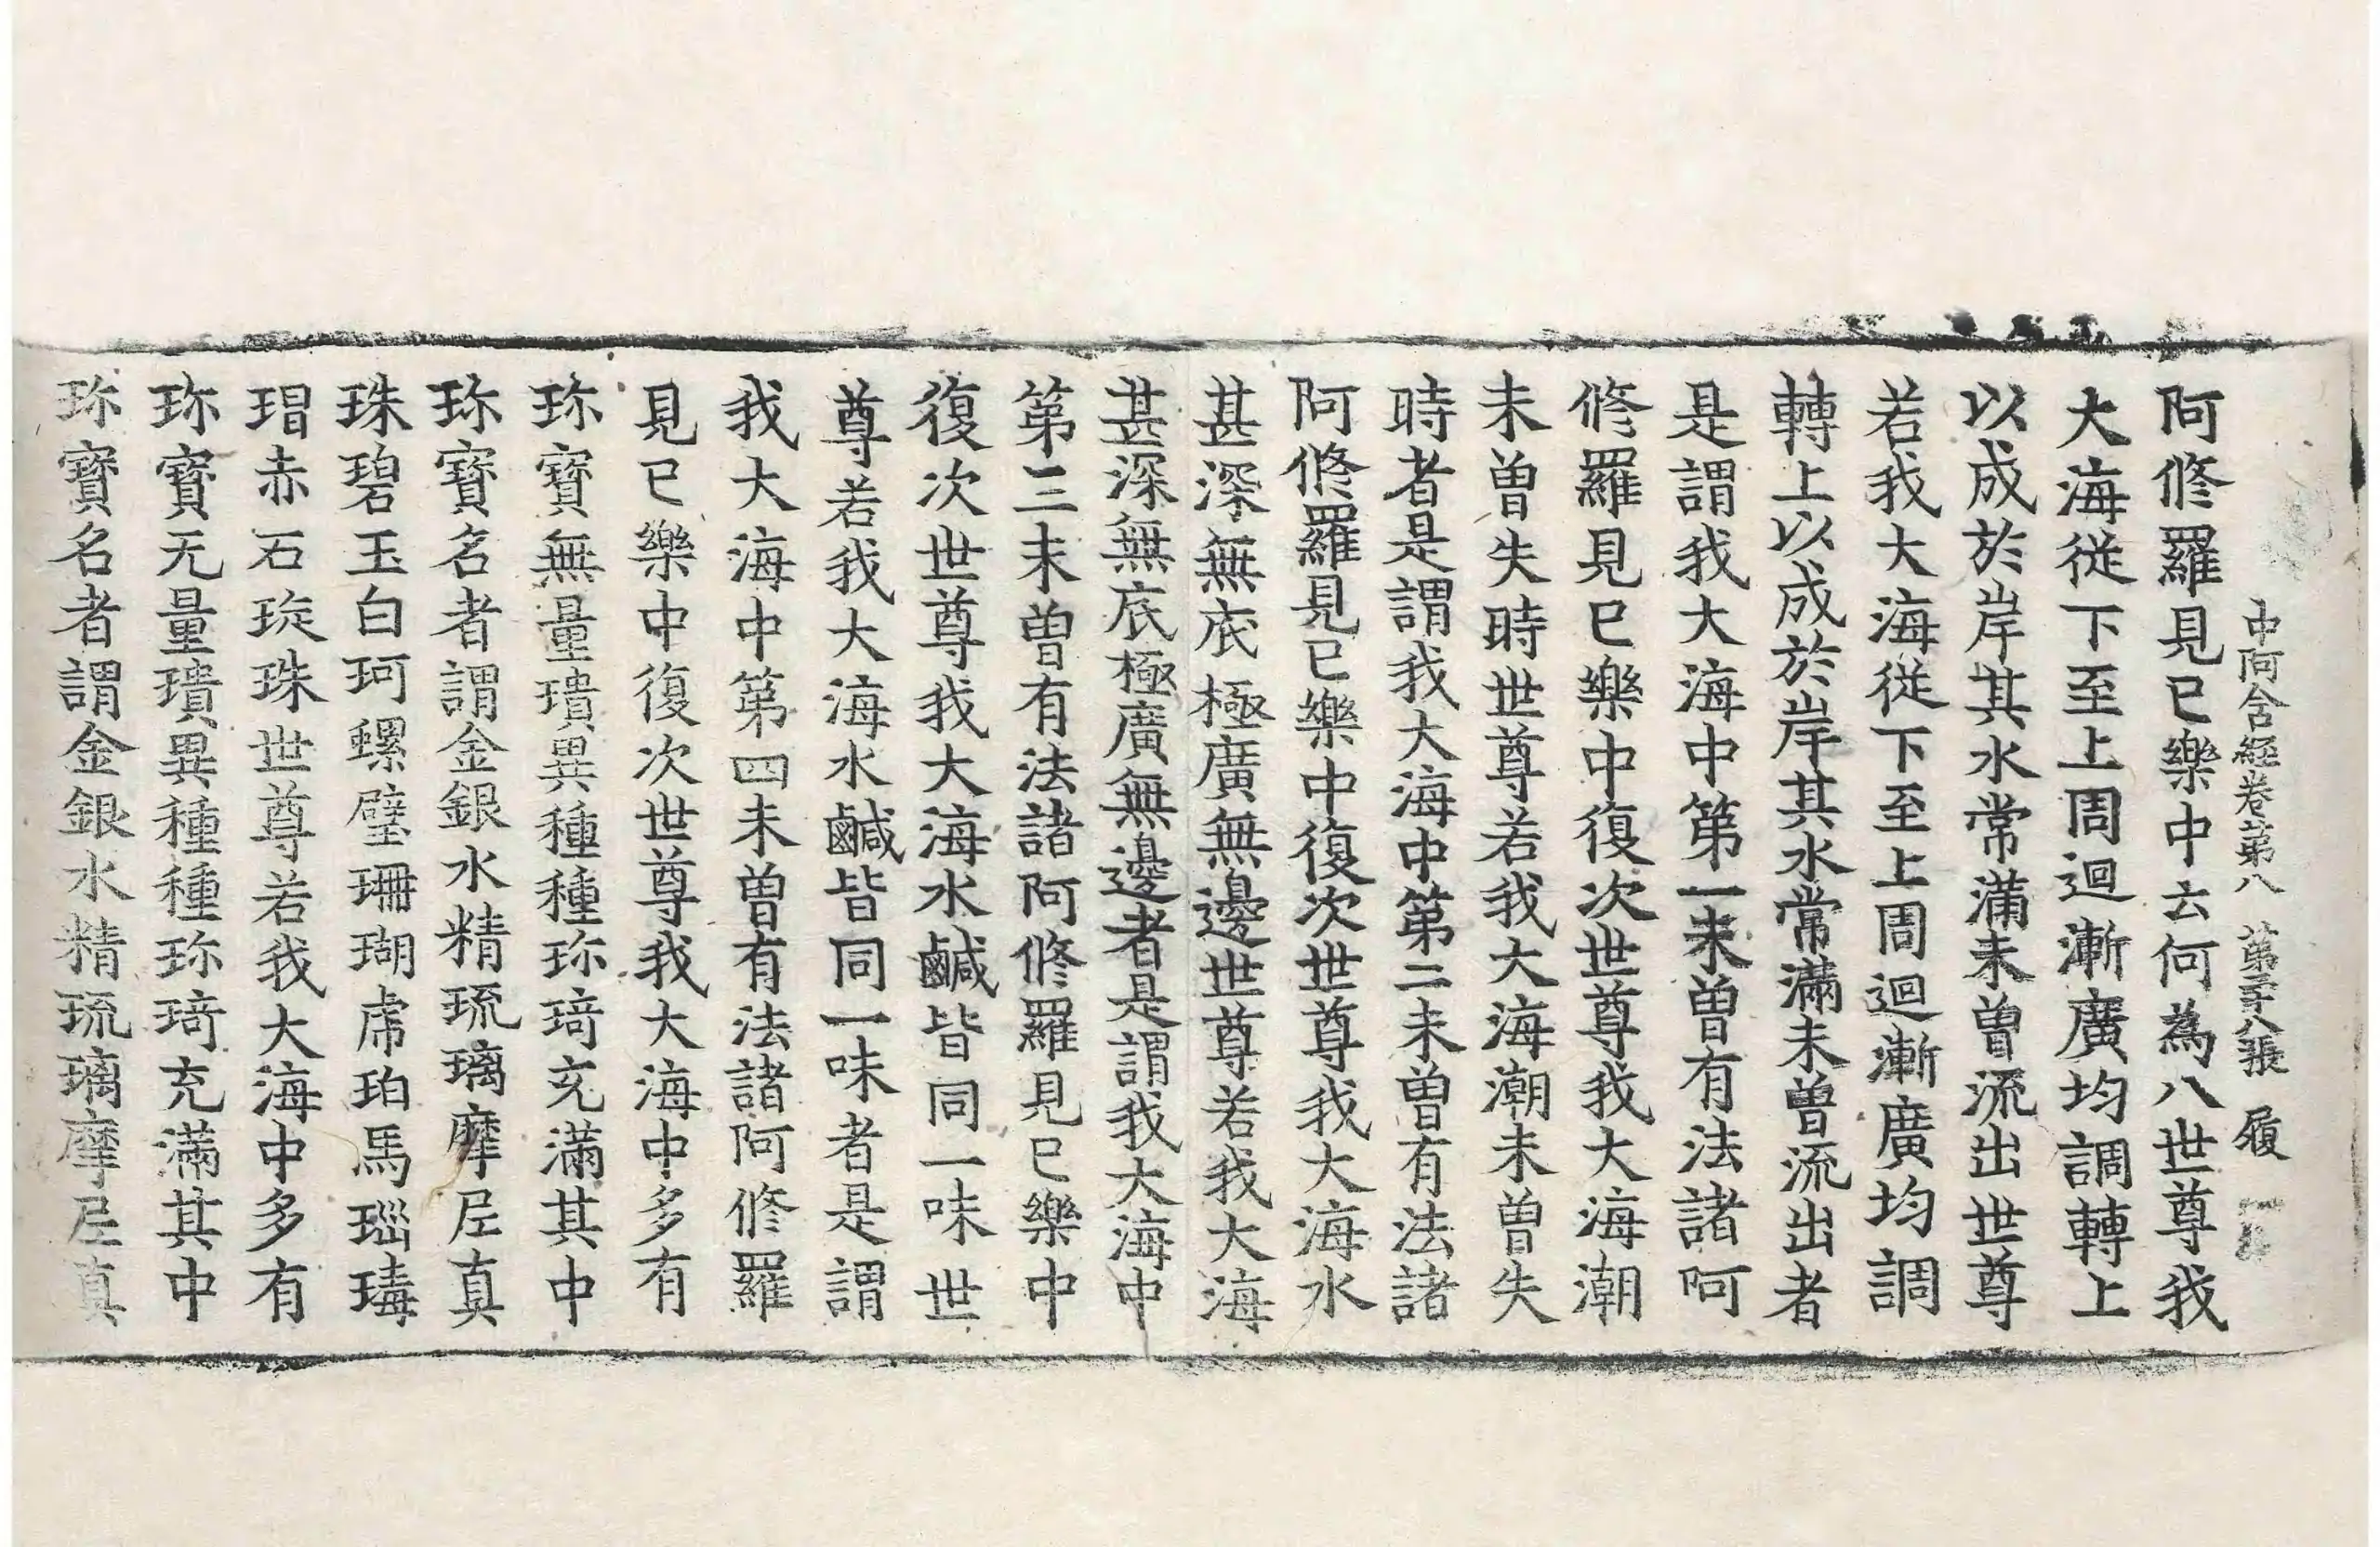 中阿含經卷第八　第二十八張　履
阿修羅見已樂中云何為八世尊我
大海從下至上周迴漸廣均調轉上
以成於岸其水常滿未曾流出世尊
若我大海從下至上周迴漸廣均調
轉上以成於岸其水常滿未曾流出者
是謂我大海中第一未曾有法諸阿
修羅見已樂中復次世尊我大海潮
未曾失時世尊若我大海潮未曾失
時者是謂我大海中第二未曾有法諸
阿修羅見已樂中復次世尊我大海水
甚深無底極廣無邊世尊若我大海
甚深無底極廣無邊者是謂我大海中
第三未曾有法諸阿修羅見已樂中
復次世尊我大海水鹹皆同一味世
尊若我大海水鹹皆同一味者是謂
我大海中第四未曾有法諸阿修羅
見已樂中復次世尊我大海中多有
珎寶無量璝異種種珎琦充滿其中
珎寶名者謂金銀水精琉璃摩尼真
珠碧玉白珂螺璧珊瑚虎珀馬瑙瑇
瑁赤石琁珠世尊若我大海中多有
珎寶无量璝異種種珎琦充滿其中
珎寶名者謂金銀水精琉璃摩尼真